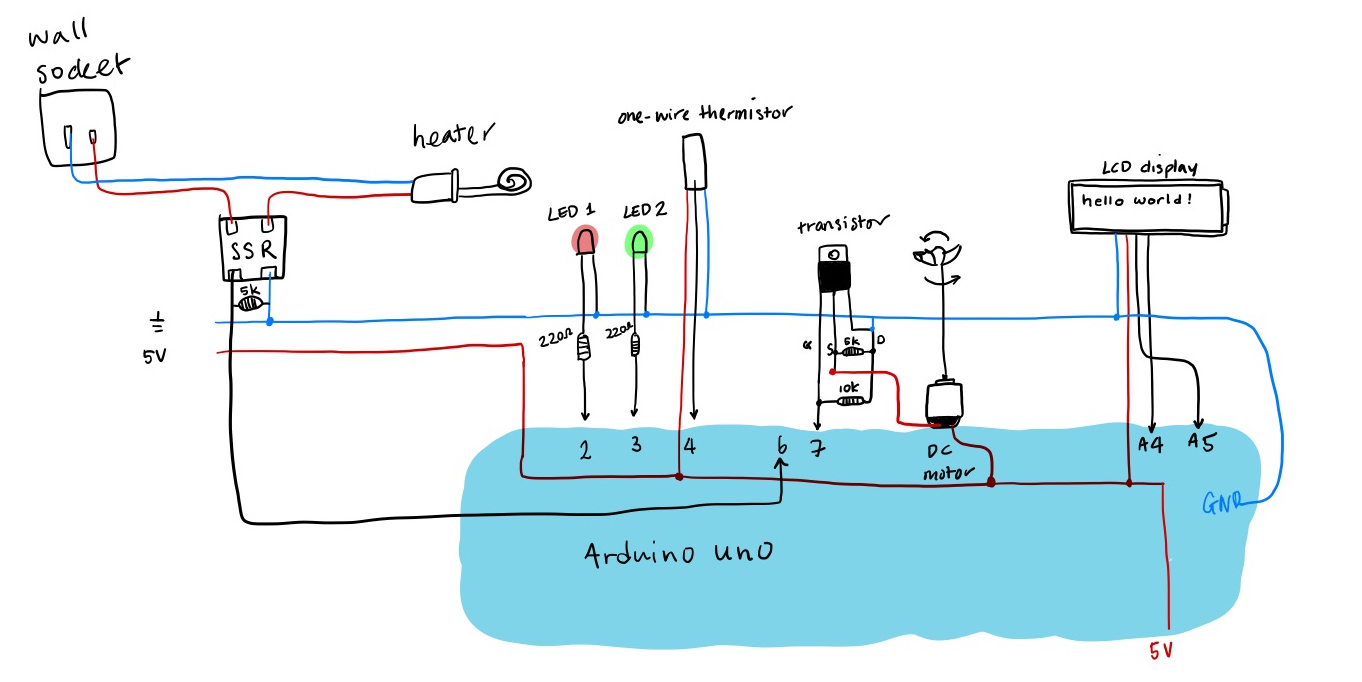 wall
socket
heater
one-wire thermistor
LCD display
hello world!
LED 1
LED 2
transistor
SSR
5k
5V
220Ω
220Ω
G
S
5k
D
10k
2
3
4
6
7
DC
motor
A4
A5
GND
Arduino uno
5V